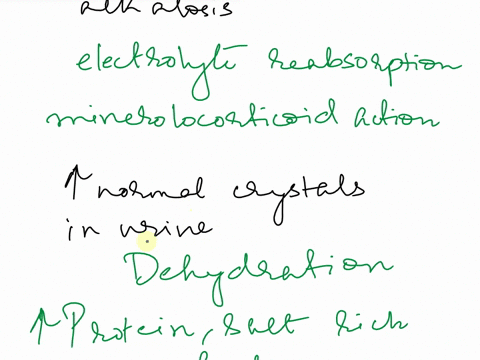 alkalosis
electrolyte reabsorption
minerolocorticoid action
↑ normal crystals
in urine
Dehydration
↑ Protein, salt rich